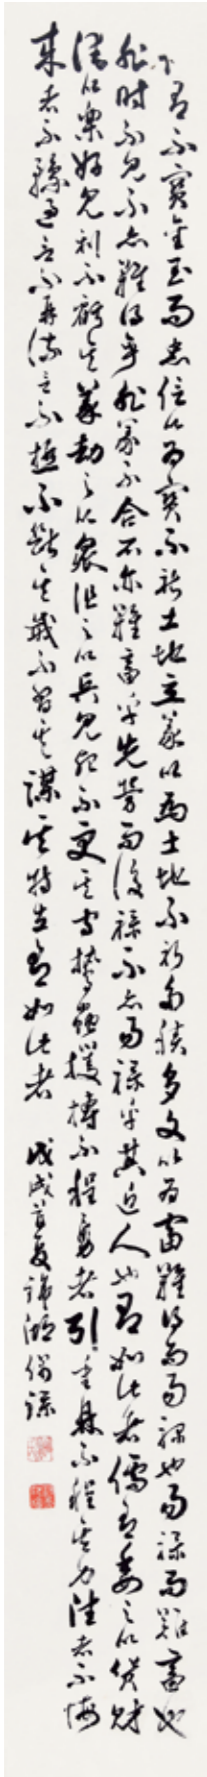 有不寶金玉而忠信以為寶不祈土地立義以為土地不祈多積多文以為富難得而易祿也易祿而難畜也
非時不見不亦難得乎非義不合不亦難畜乎先勞而後祿不亦易祿乎其近人也有如此者儒有委之以貨財
淹以樂好見利不虧其義劫之以衆沮之以兵見死不更其守鷙蟲攫搏不程勇者引重鼎不程其力往者不悔
來者不豫過言不再流言不極不斷其威不習其謀其特立有如此者 戊戌首夏